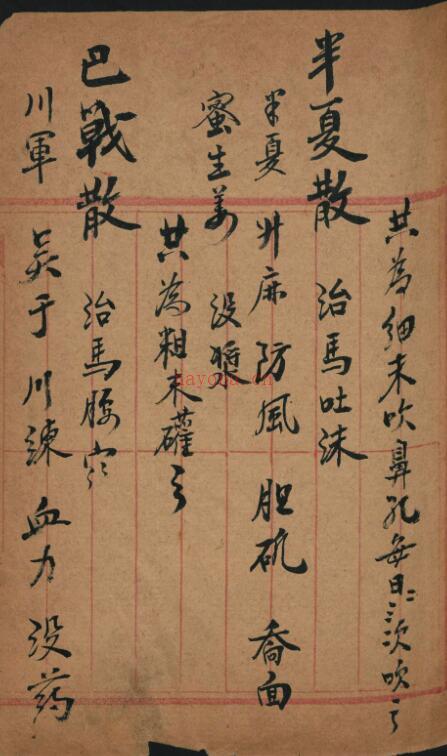 共為細末吹鼻孔每日二三次吹之
半夏散 治馬吐沫
半夏 升麻 防風 胆矾 喬面
蜜 生姜 没漿
共為粗末礶之
巴戰散 治馬腰
川軍 吳于 川練 血力 没药